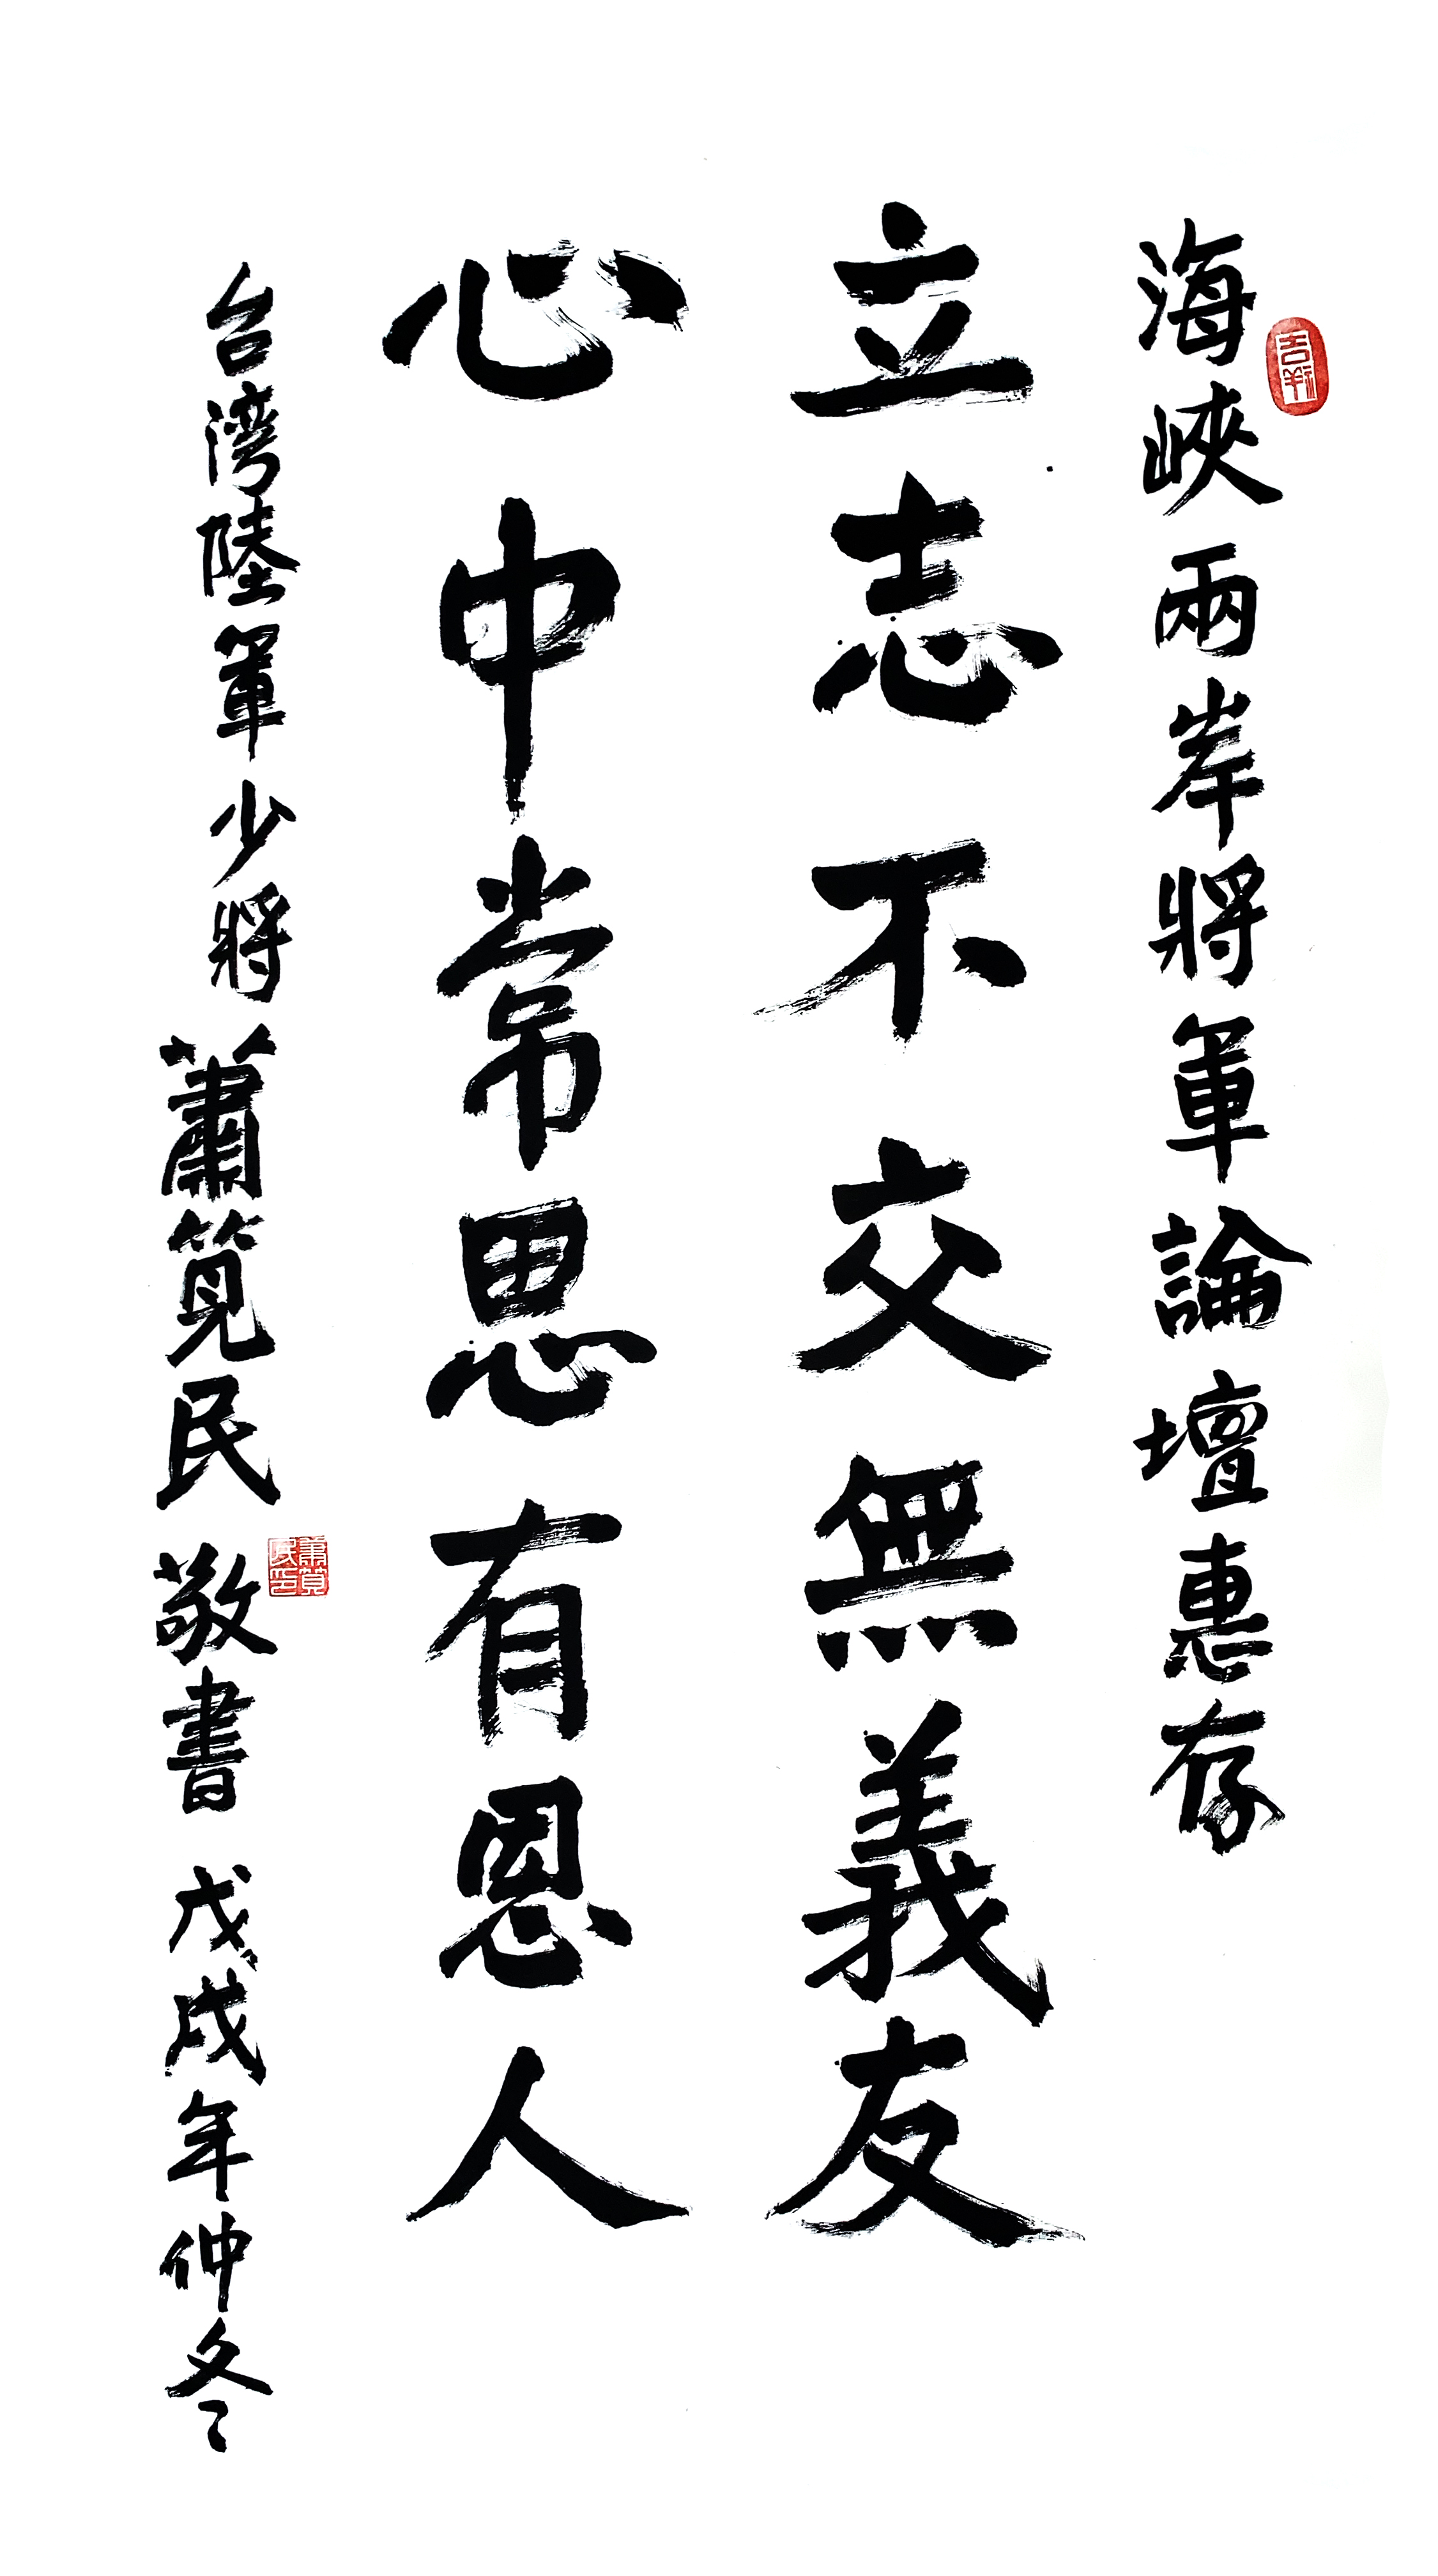 海峽兩岸將軍論壇惠存
立志不交無義友
心中常思有恩人
台湾陸軍少將蕭筧民敬書戊戌年仲冬
蕭筧民印